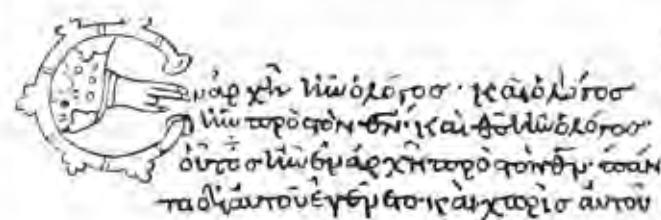 Ἐν ἀρχῆ ἦν ὁ λόγος· καὶ ὁ λόγος
ἦν πρὸς τὸν θ̅ν̅· καὶ θ̅ς̅ ἦν ὁ λόγος·
οὗτος ἦν ἐν ἀρχῆ πρὸς τὸν θ̅ν̅· πάν
τα δι' αὐτοῦ ἐγένετο· καὶ χωρὶς αὐτοῦ